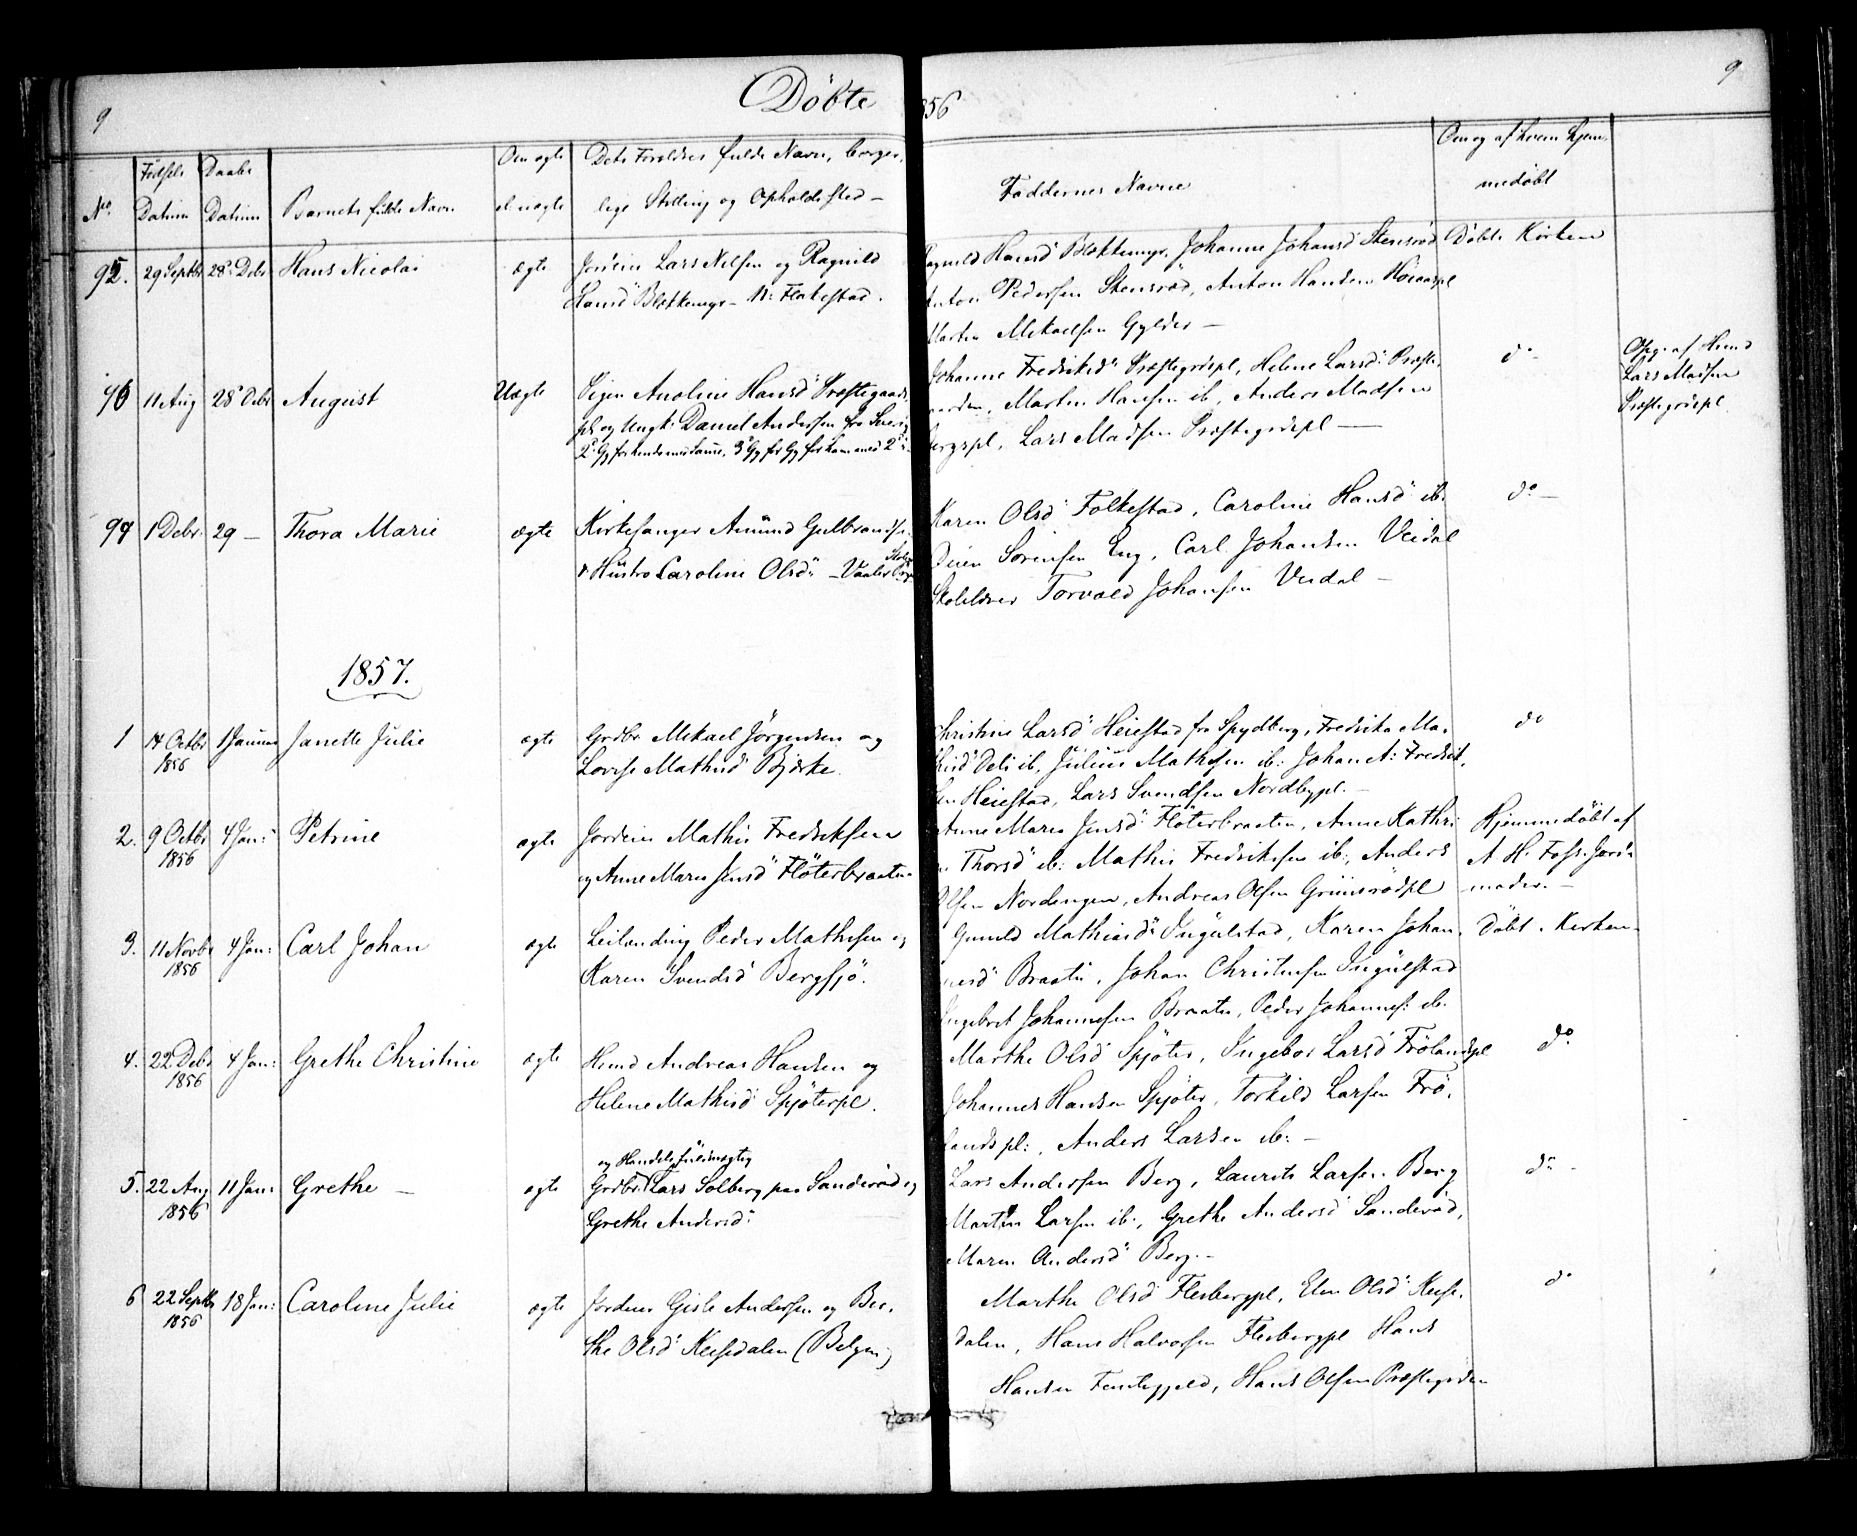 9 Döbte 1856 9
No. Födsels Datum Daabs Datum Barnets fulde Navn Om ægte el. uægte Dets Foreldres fulde Navn, borger-
lige Stilling og Opholdssted –
Faddernes Navne
Om og af hvem hjem-
medöbt
95. 29 Septbr 28 Debr Hans Nicolai ægte Lars Nilsen og Ragnild
Hansd Blekkemyr – N: Flakestad.
Ragnild Hansd Blekkemyr, Johanne Johansd Stensröd
Anton Pedersen Stensröd, Anton Hansen
Marten Mekaelsen Gylder –
Döbt i Kirken
96 11 Aug 28 Debr August Uægte Pigen Anoline Hansd Præstegaards
pl. og Ungk: Daniel Andersen fra Sverig
2 Gg for hende med samme, 3 Gg for ham med 2
Johanne Fredriksd Præstegrdspl, Helene Larsd: Præste-
gaarden, Marten Hansen ib, Anders Madsen
Bergspl, Lars Madsen Præstegrdspl –
do –
Opg. af Hmd
Lars Madsen
Præstegrdspl.
97 1 Debr. 29 – Thora Marie ægte Kirkesanger Amund Gulbrands.
& Hustro Caroline Olsd – Vaaler
Karen Olsd Folkestad, Caroline Hansd ib.
Sörensen Eng, Carl Johansen Veidal
Skolelærer Torvald Johansen Veidal –
do –
1857.
1 14 Octbr 1856 1 Januar Janette Julie ægte Grdbr. Mekael Jörgensen og
Lovise Mathisd Bjerke.
Christine Larsd Heiestad fra Spydberg, Fredrikke Ma-
thisd Deli ib, Julius Mathesen ib: Johan A: Fredrik-
sen Heiestad, Lars Svendsen Nordbypl. –
do
2. 9 Octbr 1856 4 Jan: Petrine ægte Jordein Mathis Fredriksen
og Anne Marie Jensd Flöterbraaten
Anne Marie Jensd Flöterbraaten, Anne Kathri-
ne Thorsd ib: Mathis Fredriksen ib:, Anders
Olsen Nordengen, Andreas Olsen Grimsrödpl
Hjemmedöbt af
A H. Foss. Jord-
moder. –
3. 11 Novbr 1856 4 Jan: Carl Johan ægte Leilending Peder Mathesen og
Karen Svendsd Bergsjö.
Gunild Mathiasd Ingulstad, Karen Johan-
nesd Braaten, Johan Christensen Ingulstad
Ingebret Johannesen Braaten, Peder Johannes: ib.
Döbt i Kirken
4. 22 Debr 1856 4 Jan: Grethe Christine ægte Hmd Andreas Hansen og
Helene Mathisd Spjöterpl.
Marthe Olsd Spjöter, Ingebor Larsd Frölandspl
Johannes Hansen Spjöter, Torkild Larsen Frö-
landspl:, Anders Larsen ib: –
do.
og Handelsfuldmægtig
5. 22 Aug 1856 11 Jan: Grethe – ægte Grdbr: Lars Solberg paa Sanderöd og
Grethe Andersd:
Lars Andersen Berg, Laurits Larsen Berg
Martin Larsen ib., Grethe Andersd Sanderöd,
Maren Andersd Berg. –
do –
6 22 Septbr 1856 18 Jan: Caroline Julie ægte Jordein Gisle Andersen og Ber-
the Olsd Keisedalen (Belgen)
Marthe Olsd Flesbergpl, Olsd Keise-
dalen, Hans Halvorsen Flesbergpl Hans
Hansen, Hans Olsen Præstegrden
do